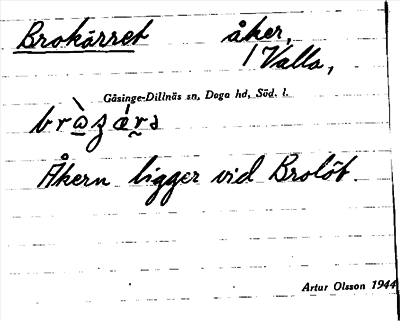 Brokärret åker,
/ Valla,
Gåsinge-Dillnäs sn, Daga hd, Söd. l.
Åkern ligger vid Brolöt.
Artur Olsson 1944